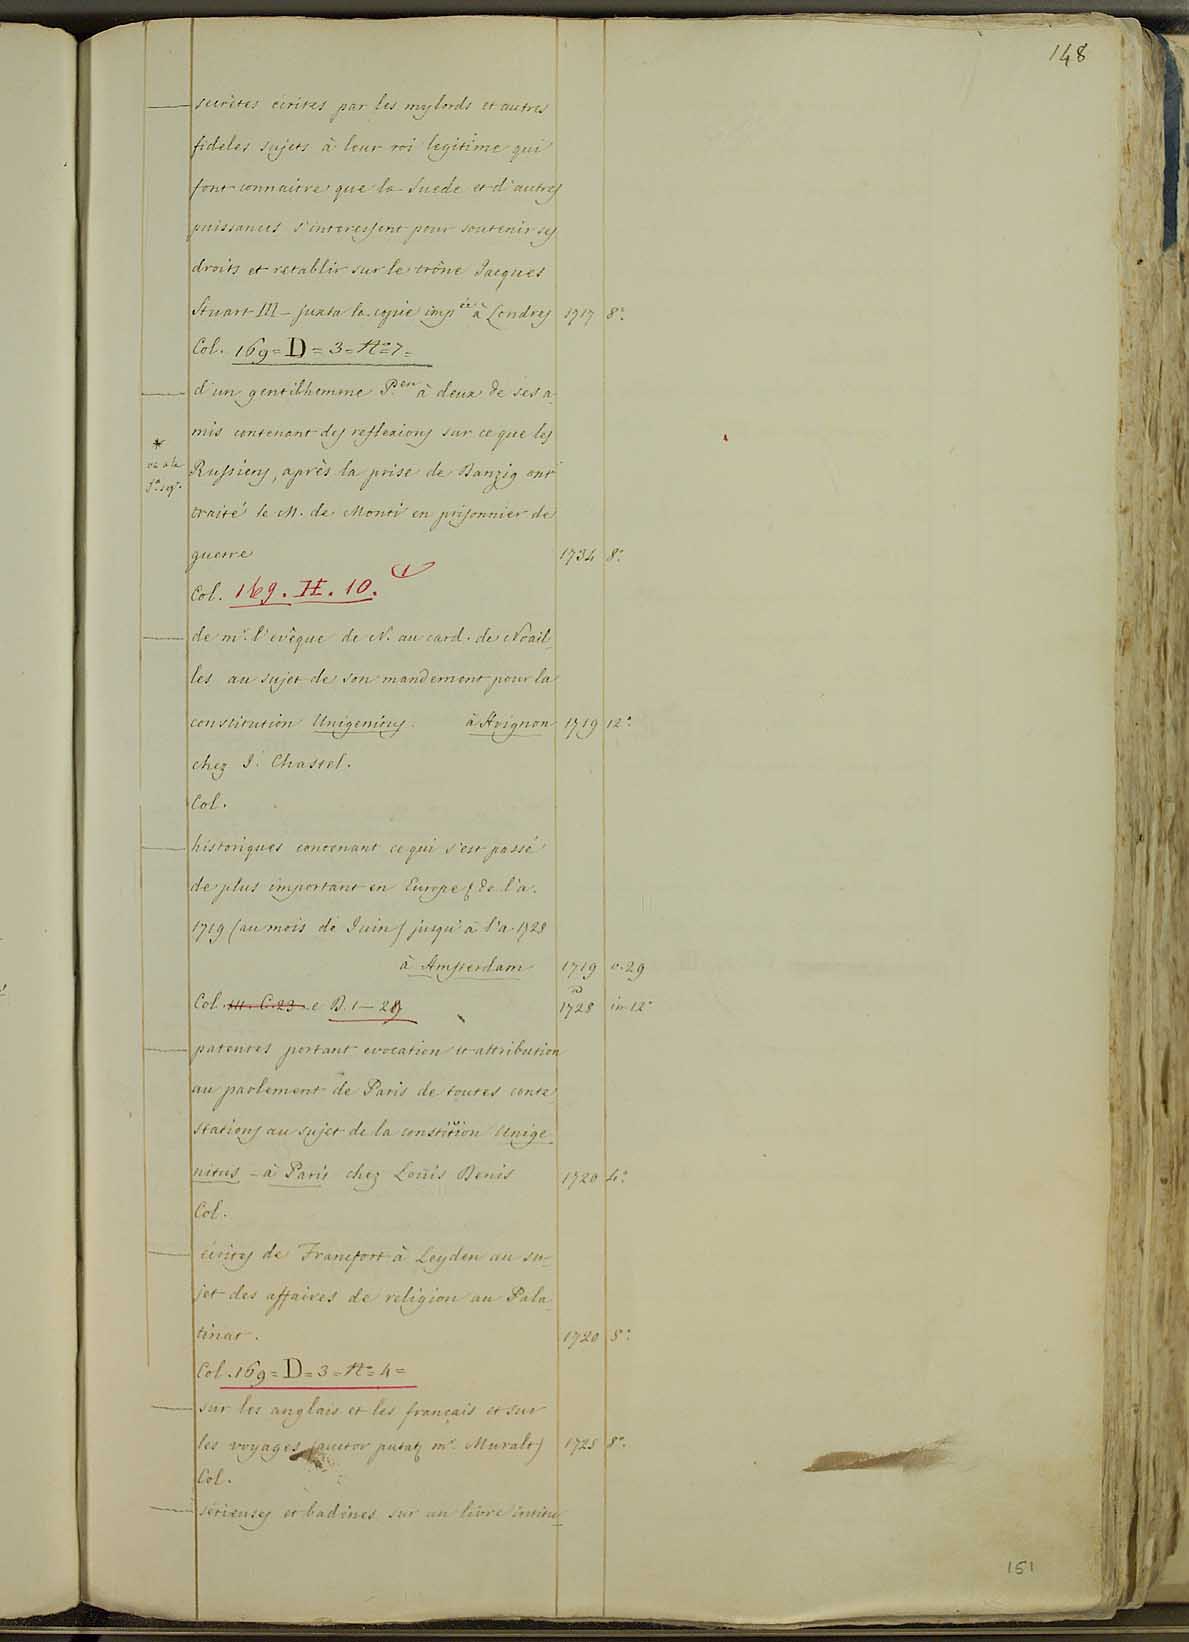 148
— secrètes écrites par les mylords et autres
fideles sujets à leur roi legitime qui
font connaitre que la Suede et d'autres
puissances s'interessent pour soutenir ses
droits et retablir sur le trône Jacques
Stuart III – juxta la copie imp.ée à Londres 1717 8°.
Col. 169=D=3=N°=7=
— d'un gentilhomme P.en à deux de ses a-
mis contenant des reflexions sur ce que les
Russiens, après la prise de Danzig ont
traité le M. de Monti en prisonnier de
guerre 1734 8°.
Col. 169. H. 10.
— de mr. l'evêque de N. au card. de Noail-
les au sujet de son mandement pour la
constitution Unigenitus. à Avignon 1719 12°
chez J. Chastel.
Col.
— historiques contenant ce qui s'est passé
de plus important en Europe de l'a.
1719 (au mois de Juin) jusqu'à l'a. 1728
à Amsterdam 1719 v. 29
Col. B. 1–29 1728 in 12°
— patentes portant evocation et attribution
au parlement de Paris de toutes conte
stations au sujet de la constitution Unige
nitus – à Paris chez Louis Denis 1720 4°.
Col.
— écrites de Francfort à Leyden au su-
jet des affaires de religion au Pala-
tinat. 1720 8°.
Col. 169=D=3=N°=4=
— sur les anglais et les français et sur
les voyages (auctor putat mr. Muralt) 1725 8°.
Col.
— serieuses et badines sur un livre intitu-
151